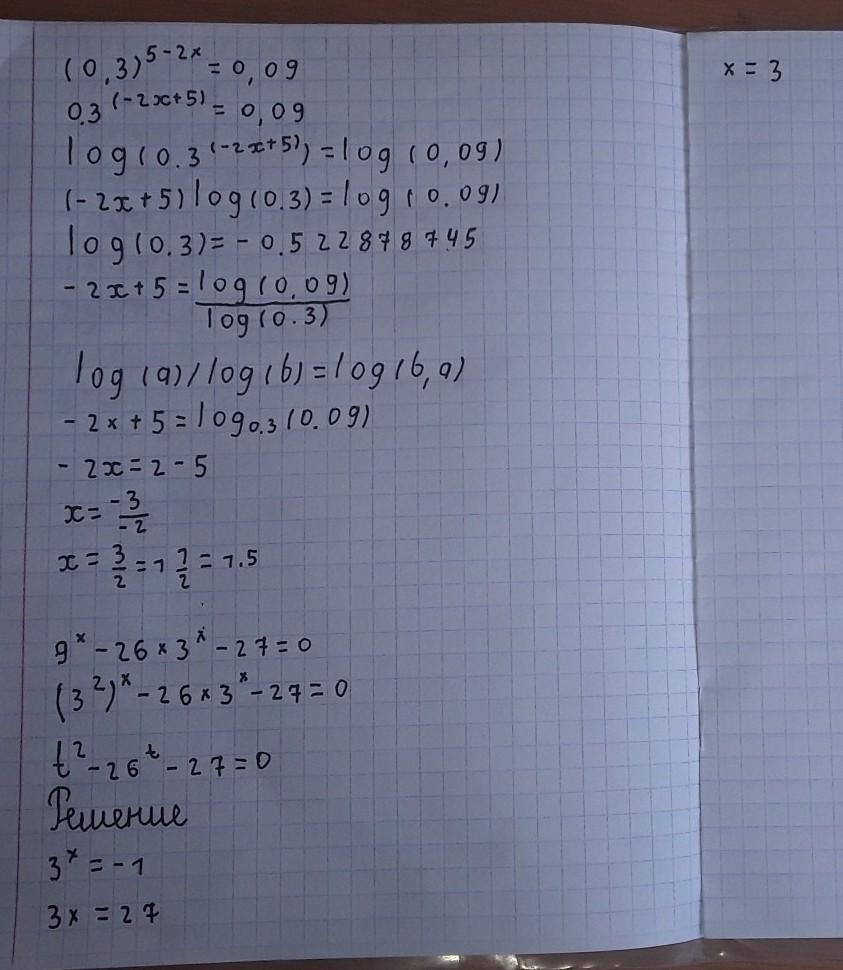 (0,3)^5-2x = 0,09
0.3^(-2x+5) = 0,09
log(0.3^(-2x+5)) = log(0,09)
(-2x+5)log(0.3) = log(0.09)
log(0.3) = -0.522878745
-2x+5 = log(0,09)/log(0.3)
log(a)/log(b) = log(b,a)
-2x+5 = log₀.₃(0.09)
-2x = 2-5
x = -3/-2
x = 3/2 = 1 1/2 = 1.5
9^x - 26 × 3^x - 27 = 0
(3^2)^x - 26 × 3^x - 27 = 0
t^2 - 26^t - 27 = 0
Решение
3^x = -1
3x = 27
x = 3